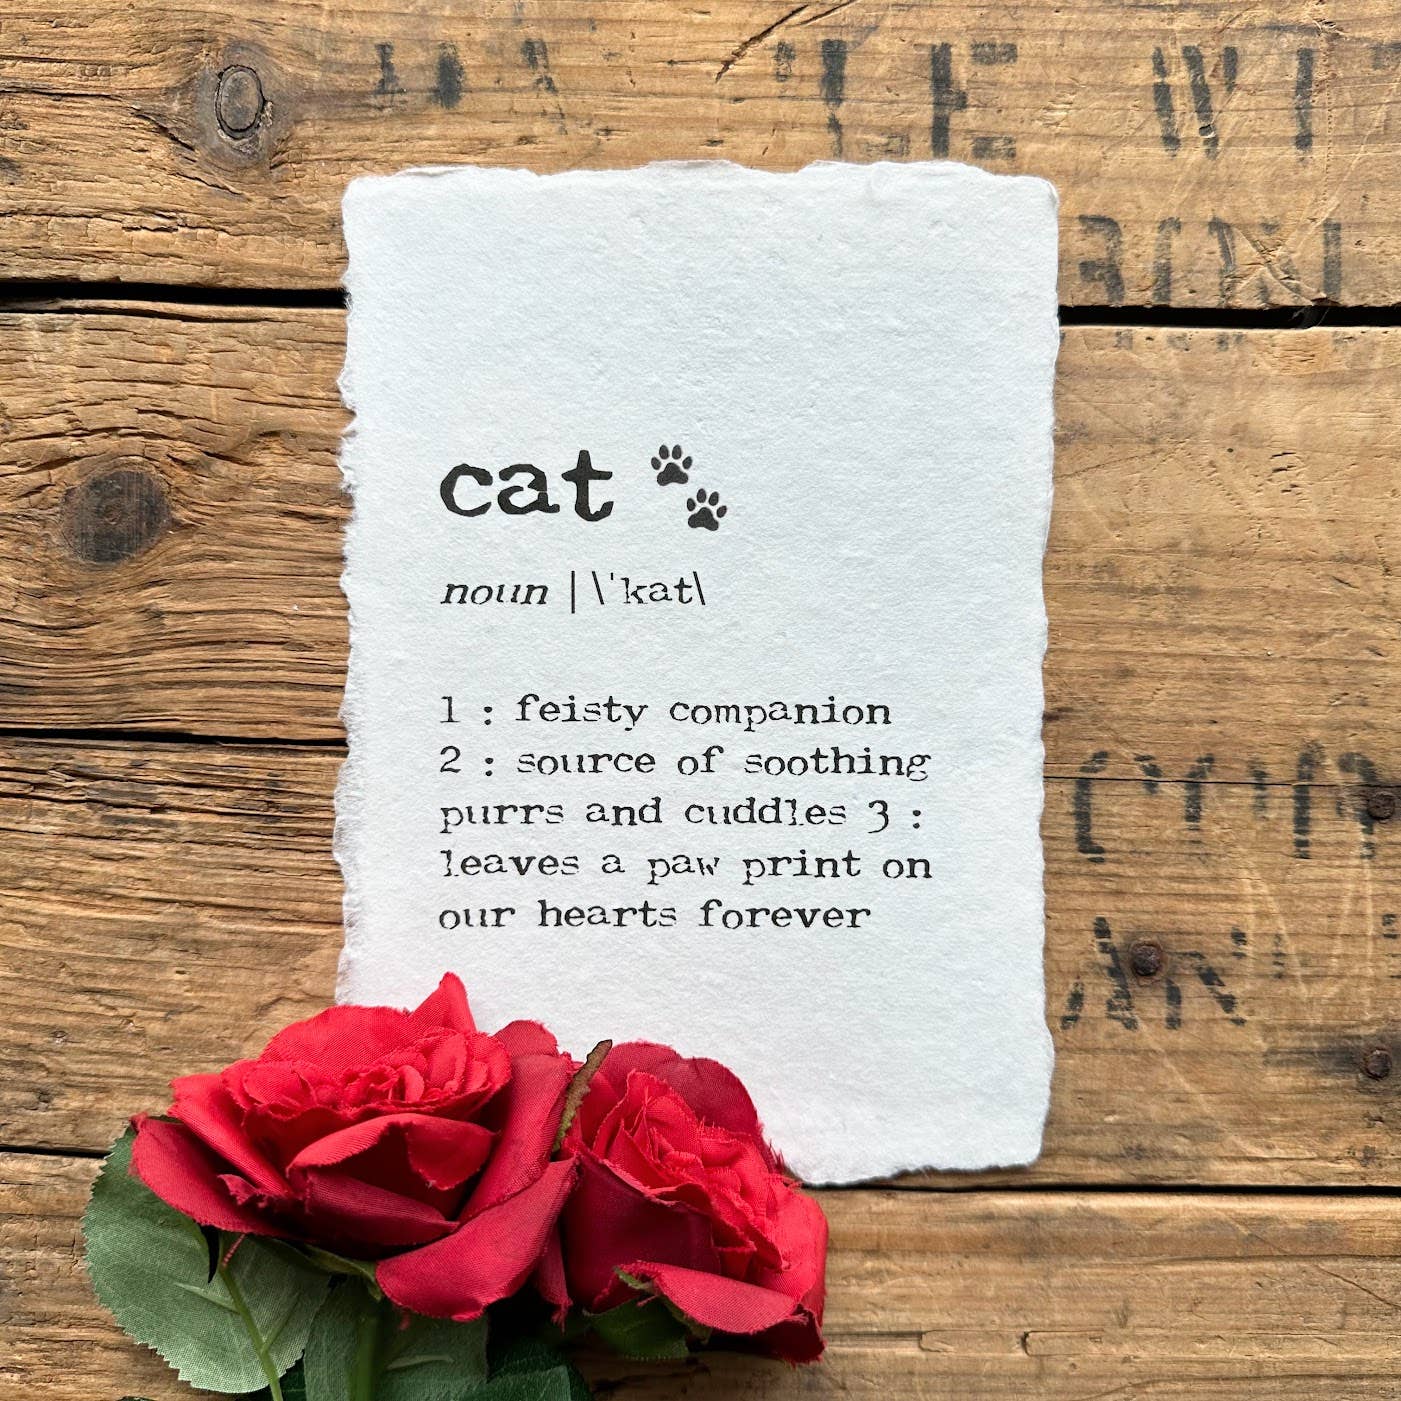 cat
noun | \ˈkat\
1 : feisty companion
2 : source of soothing
purrs and cuddles 3 :
leaves a paw print on
our hearts forever